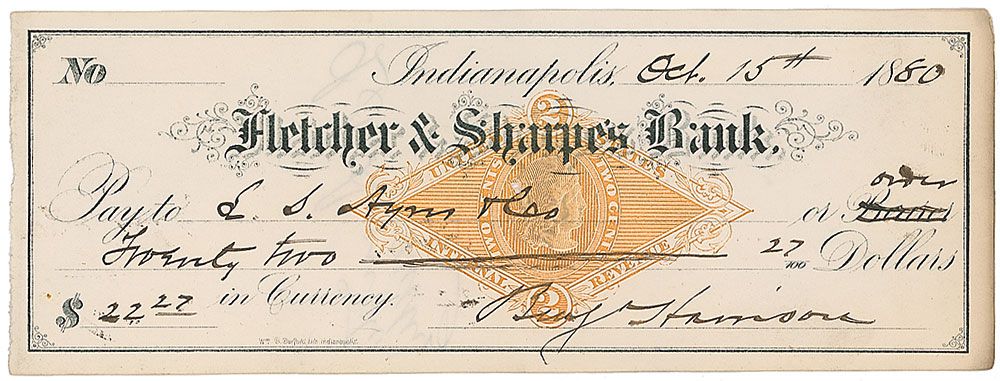 No Indianapolis, Oct. 15th 1880
Fletcher & Sharpe's Bank.
order
Pay to L. S. Ayres & Co or Bearer
Twenty two 27/100 Dollars
$ 22 27 in Currency. Benj Harrison
2
UNITED STATES
TWO CENTS
INTERNAL REVENUE
2